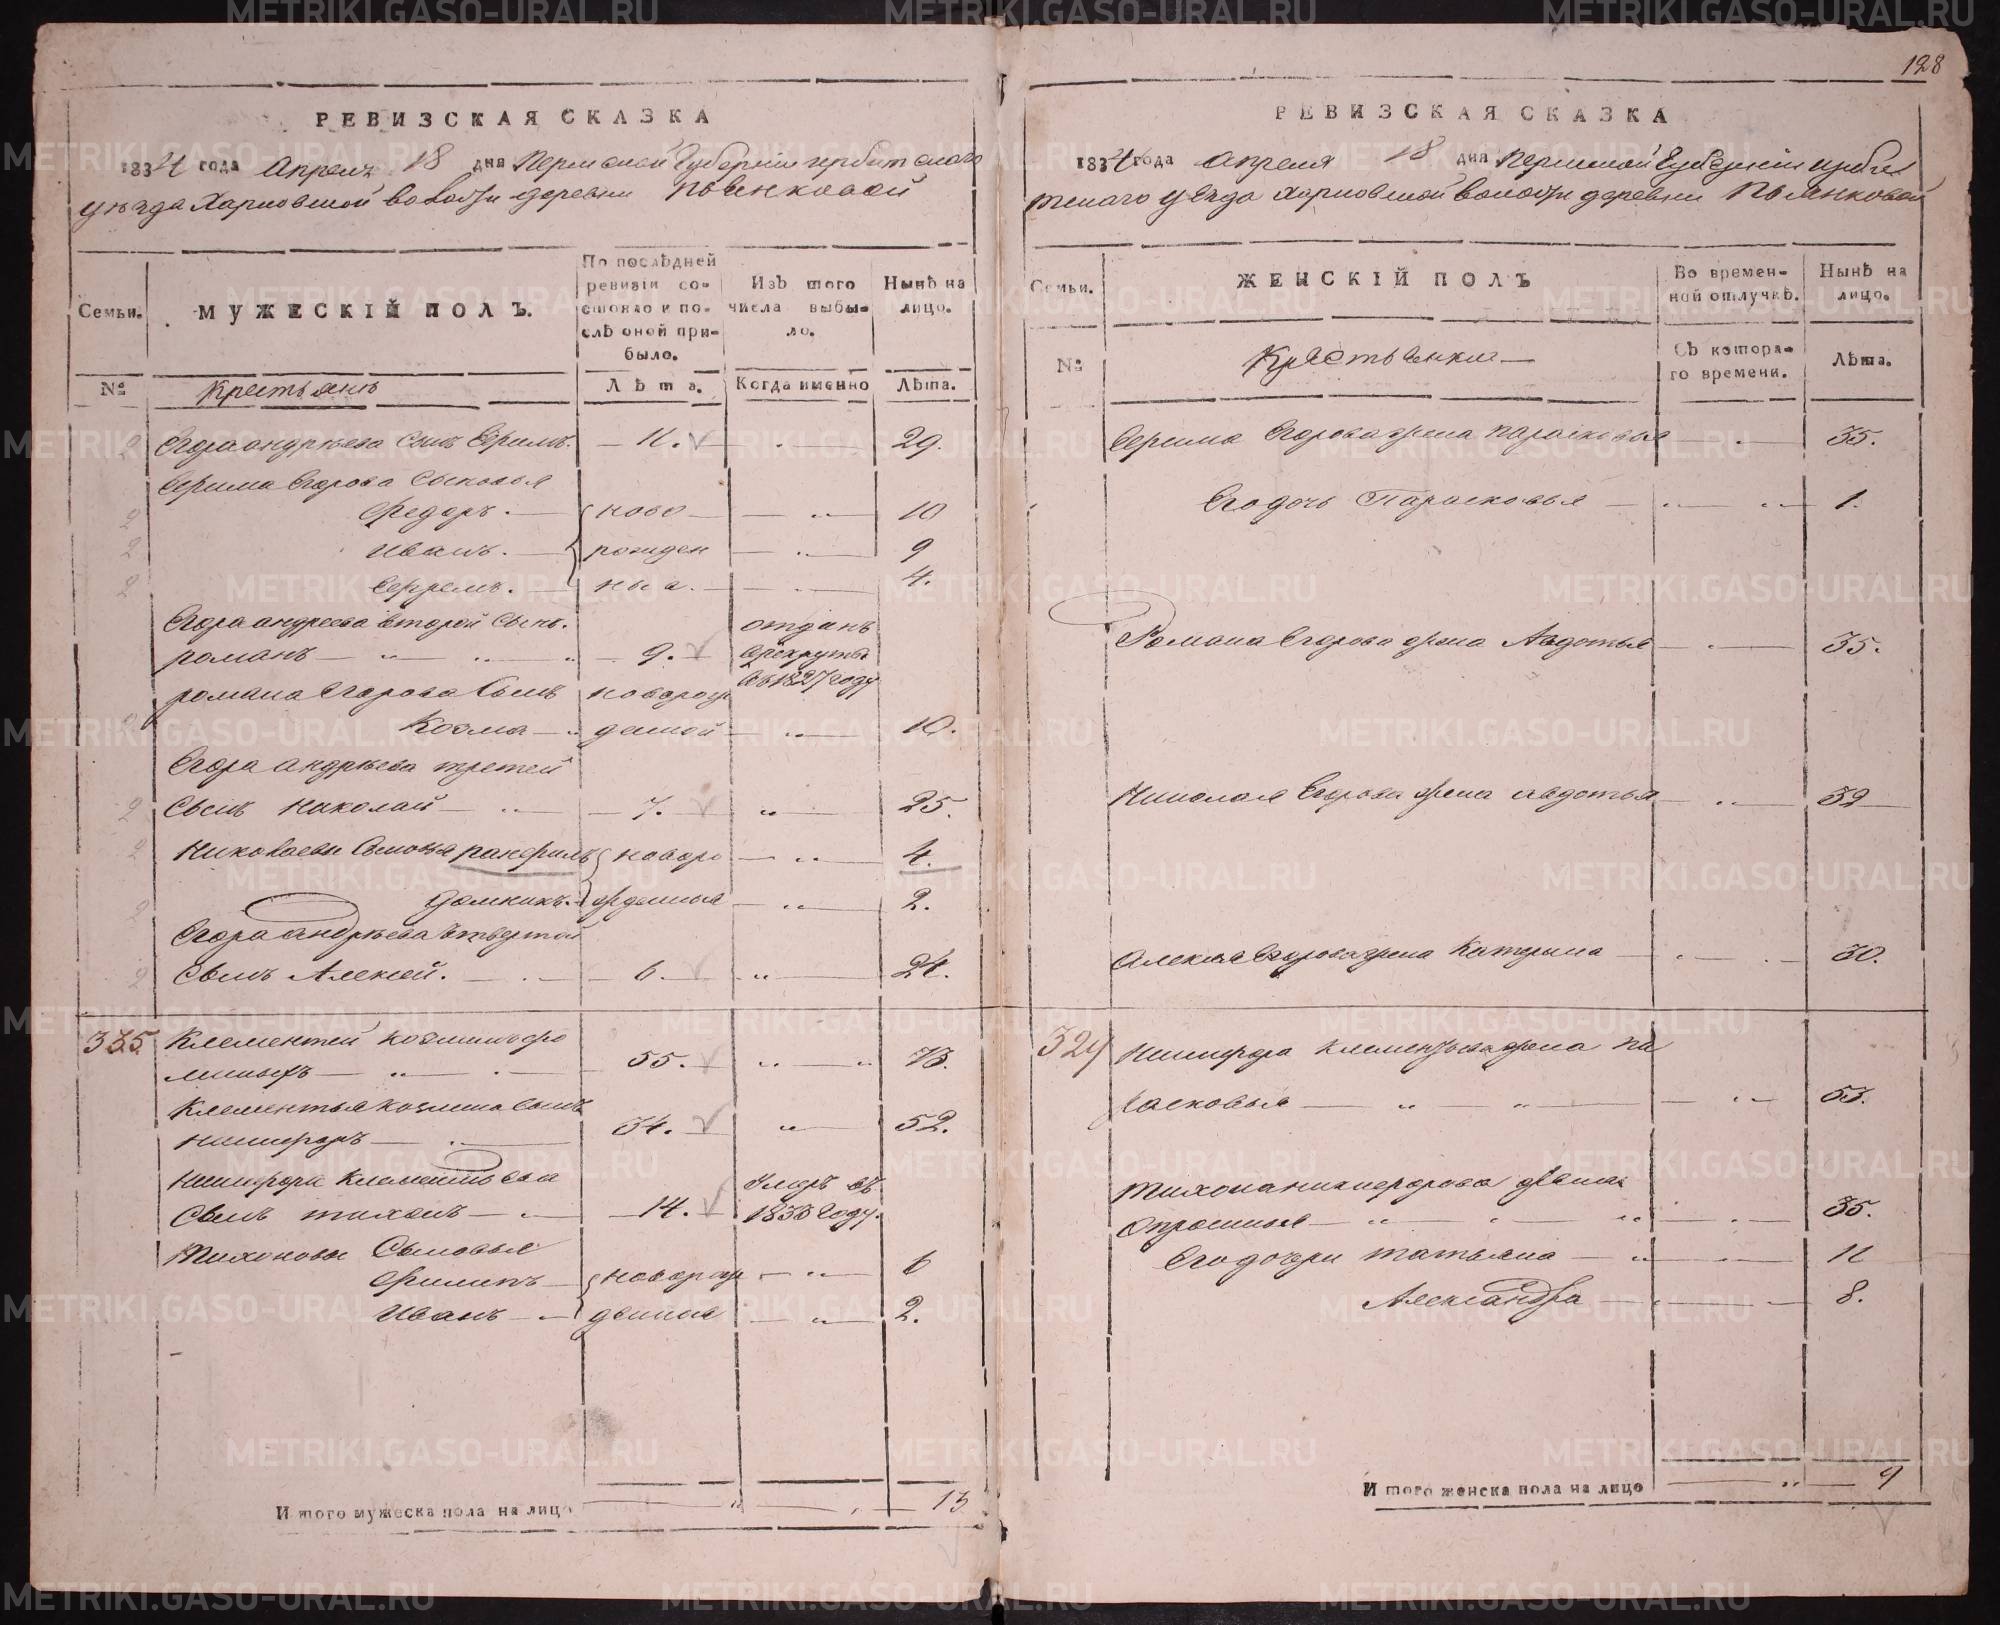 128
РЕВИЗСКАЯ СКАЗКА
1834 года Апреля 18 дня Пермской Губернии ирбитскаго
уезда Харловской волости деревни Пьянковой
Семьи.
МУЖЕСКІЙ ПОЛЪ.
По послѣдней ревизіи состояло и послѣ оной прибыло.
Изъ того числа выбыло.
Нынѣ на лицо.
№
Крестьянъ
Лѣта.
Когда именно
Лѣта.
Егора андрѣева сынъ Ефимъ. — 11. — 29.
Ефима Егорова Сыновья
Федоръ. — ново — „ — 10
Иванъ. — рожден — „ — 9
Ефремъ. — ныа. — 4.
Егора андреева второй Сынъ.
отданъ
романъ — „ — 9.
в рекруты
въ 1827 году
романа Егорова Сынъ новорож
Козма — „ деной — „ — 10.
Егора андрѣева третей
Сынъ николай — „ — 7. „ — 25.
Николаевы Сыновья панфилъ новоро — „ — 4.
жденныя — „ — 2.
Егора андрѣева четвертой
Сынъ Алексей. — 6. „ — 24.
335 Клементей козминъ фо
миныхъ — „ — 55. „ — „ 73.
Клементья козмина сынъ
никифоръ — 34. „ — 52.
никифора Клементьева
умеръ въ
Сынъ тихонъ — 14. 1833 году.
Тихоновы Сыновья
Филипъ — новорож — „ — 6
Иванъ — дение — „ — 2.
Итого мужеска пола на лицо — „ — 13
РЕВИЗСКАЯ СКАЗКА
1834 года апреля 18 дня пермской Губернии ирбит
скаго уезда харловской волости деревни Пьянковой
Семьи.
ЖЕНСКІЙ ПОЛЪ
Во временной отлучкѣ.
Нынѣ на лицо.
№
Крестьянки —
Съ котораго времени.
Лѣта.
Ефима Егорова жена парасковья — 35.
Его дочь Парасковья — „ — 1.
Романа Егорова жена Авдотья — 35.
Николая Егорова жена авдотья — „ — 32
Алексея Егорова жена Катерина — 30.
324 никифора клементьева жена па
расковья — „ — „ — 53.
Тихона никифорова жена
Опросинья — „ — 35.
Его дочери татьяна — „ — 11
Александра — 8.
Итого женска пола на лицо — „ — 9
METRIKI.GASO-URAL.RU